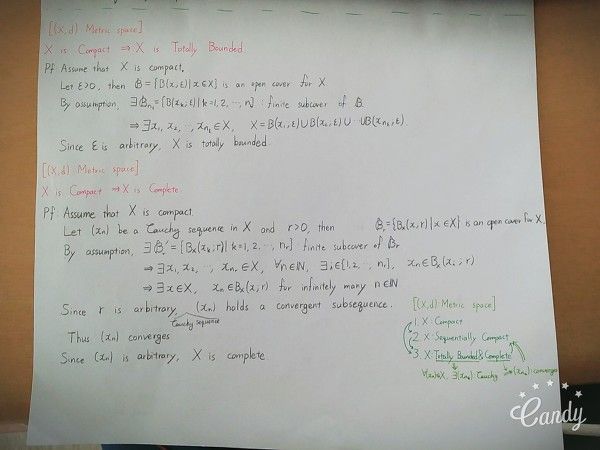 [(X,d) : Metric space]
X is Compact ⇒ X is Totally Bounded
Pf: Assume that X is compact.
Let ε>0, then 𝔅 = {B(x,ε) | x∈X} is an open cover for X.
By assumption, ∃𝔅n₁ = {B(xk;ε) | k=1, 2, ⋯, n} : finite subcover of 𝔅.
⇒ ∃x₁, x₂, ⋯, xnε∈X, X = B(x₁;ε)∪B(x₂;ε)∪ ⋯ ∪B(xnε;ε).
Since ε is arbitrary, X is totally bounded.
[(X,d) : Metric space]
X is Compact ⇒ X is Complete
Pf: Assume that X is compact.
Let (xn) be a Cauchy sequence in X and r>0, then 𝔅r = {Bx(x;r) | x∈X} is an open cover for X.
By assumption, ∃𝔅r' = {Bx(xk;r) | k=1, 2, ⋯, nr} finite subcover of 𝔅r
⇒ ∃x₁, x₂, ⋯, xnr∈X, ∀n∈ℕ, ∃i∈{1, 2, ⋯, nr}, xn∈Bx(xi;r)
⇒ ∃x∈X, xn∈Bx(x;r) for infinitely many n∈ℕ
Since r is arbitrary, (xn) holds a convergent subsequence.
Cauchy sequence
Thus (xn) converges
Since (xn) is arbitrary, X is complete
[(X,d) : Metric space]
1. X : Compact
2. X : Sequentially Compact
3. X : Totally Bounded & Complete
∀(xn)∈X, ∃(xnk) : Cauchy (xnk) : converges
Candy